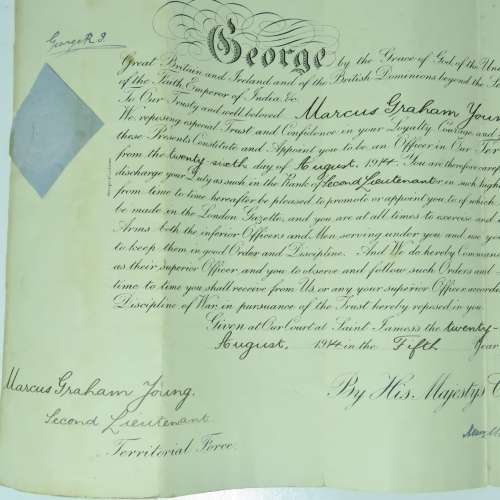 George R.I.
George by the Grace of God, of the Uni
Great Britain and Ireland and of the British Dominions beyond the Se
of the Faith, Emperor of India, &c.
To Our Trusty and well beloved Marcus Graham Youn
We, reposing especial Trust and Confidence in your Loyalty, Courage and
these Presents Constitute and Appoint you to be an Officer in Our Terr
from the twenty sixth day of August, 1914. You are therefore carefu
discharge your Duty as such in the Rank of Second Lieutenant or in such highe
from time to time hereafter be pleased to promote or appoint you to of which
be made in the London Gazette, and you are at all times to exercise and
Arms both the inferior Officers and Men serving under you and use you
to keep them in good Order and Discipline. And We do hereby Comman
as their superior Officer and you to observe and follow such Orders and
time to time you shall receive from Us, or any your superior Officer accord
Discipline of War in pursuance of the Trust hereby reposed in you.
Given at Our Court at Saint James's the twenty-
August, 1914 in the Fifth Year
By His Majesty's C
Marcus Graham Young.
Second Lieutenant
Territorial Force.